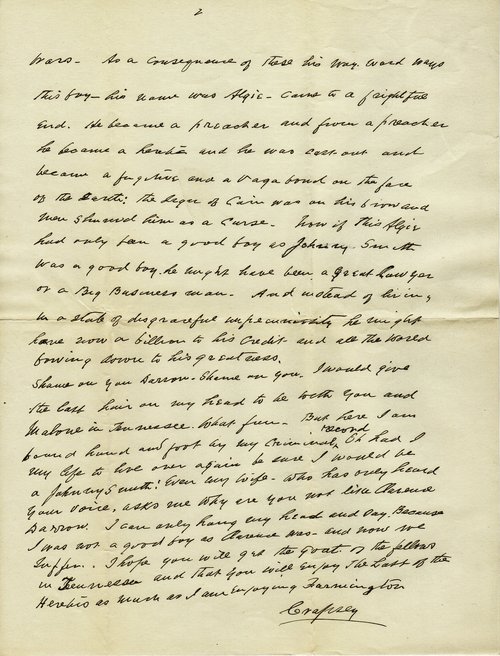 2
Wars - As a consequence of these his way ward ways
this boy - his name was Algie - came to a frightful
End. He became a preacher and from a preacher
he became a heretic and he was cast out and
became a fugitive and a vagabond on the face
of the Earth: the of Cain was on his brow and
men shunned him as a curse - Now if this Algie
had only been a good boy as Johnny Smith
was a good boy. he might have been a great Lawyer
or a Big Business man - And instead of living
in a state of disgraceful impecuniosity he might
have now a billion to his credit and all the world
bowing down to his greatness.
Shame on you Darrow - Shame on you. I would give
the last hair on my head to be with you and
Malone in Tennessee. What fun - But here I am
bound hand and foot by my Criminal record, Oh had I
my life to live over again be sure I would be
a Johnny Smith! Even my wife - who has only heard
your voice, asks me why are you not like Clarence
Darrow. I can only hang my head and say. Because
I was not a good boy as Clarence was - and now we
suffer. I hope you will get the Goat of the fellows
in Tennessee and that you will enjoy the Last of the
Heretics as much as I am Enjoying Farmington
Crapsey